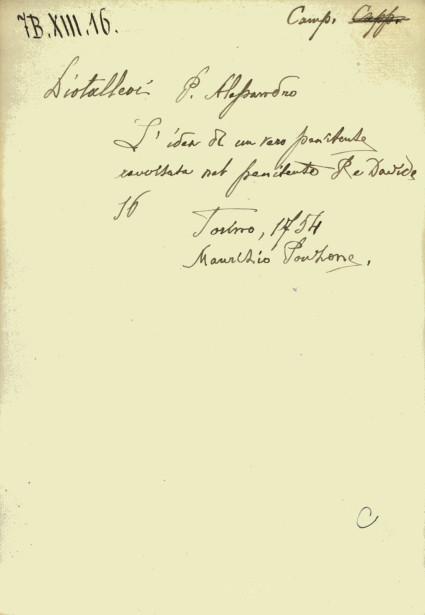 7B.XIII.16.
Camp. Capp.
Diotallevi P. Alessandro
L'idea di un vero penitente
ravvisata nel penitente Re Davide
16
Torino, 1754
Maurizio Ponzone,
C